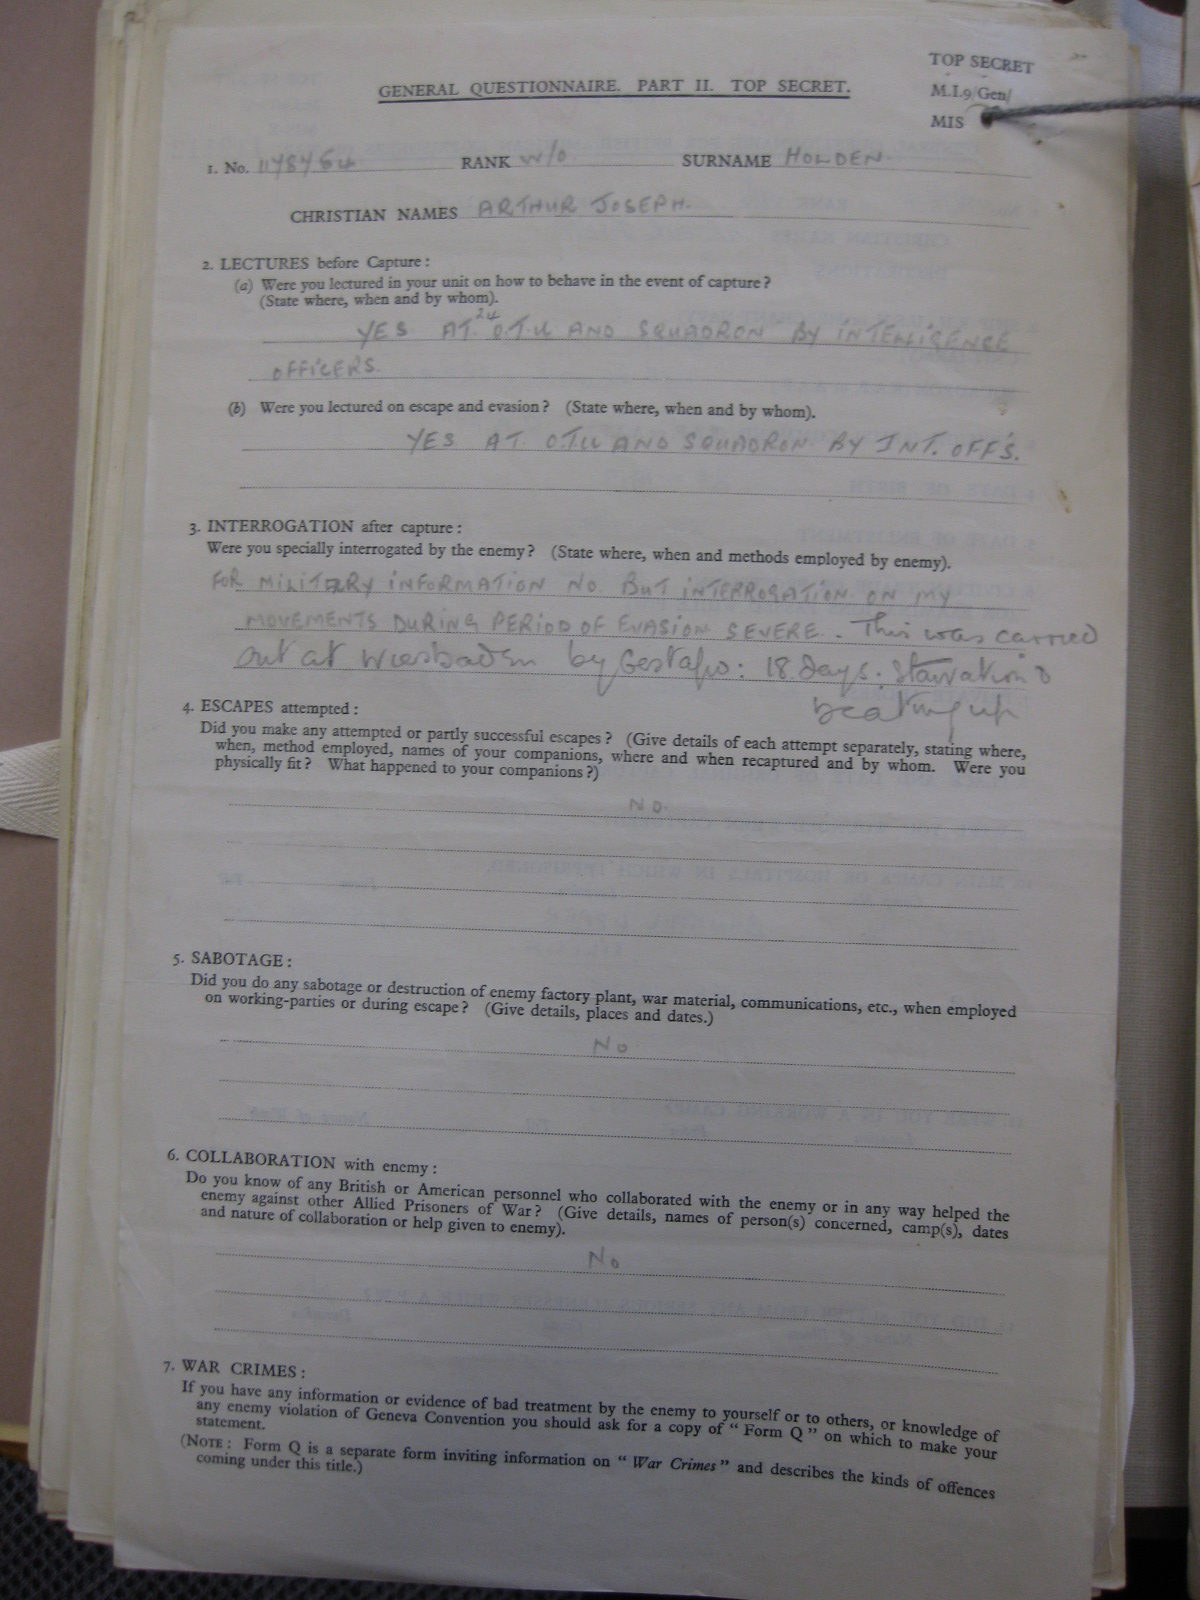 TOP SECRET
GENERAL QUESTIONNAIRE. PART II. TOP SECRET.
M.I.9/Gen/
MIS
1. No. 1148454 RANK W/O SURNAME HOLDEN.
CHRISTIAN NAMES ARTHUR JOSEPH.
2. LECTURES before Capture:
(a) Were you lectured in your unit on how to behave in the event of capture?
(State where, when and by whom).
YES AT 24 O.T.U AND SQUADRON BY INTELLIGENCE
OFFICERS.
(b) Were you lectured on escape and evasion? (State where, when and by whom).
YES AT O.T.U AND SQUADRON BY INT. OFFS.
3. INTERROGATION after capture:
Were you specially interrogated by the enemy? (State where, when and methods employed by enemy).
FOR MILITARY INFORMATION NO. BUT INTERROGATION ON MY
MOVEMENTS DURING PERIOD OF EVASION SEVERE. This was carried
out at Wiesbaden by Gestapo: 18 days. Starvation &
beating up
4. ESCAPES attempted:
Did you make any attempted or partly successful escapes? (Give details of each attempt separately, stating where,
when, method employed, names of your companions, where and when recaptured and by whom. Were you
physically fit? What happened to your companions?)
NO.
5. SABOTAGE:
Did you do any sabotage or destruction of enemy factory plant, war material, communications, etc., when employed
on working-parties or during escape? (Give details, places and dates.)
No
6. COLLABORATION with enemy:
Do you know of any British or American personnel who collaborated with the enemy or in any way helped the
enemy against other Allied Prisoners of War? (Give details, names of person(s) concerned, camp(s), dates
and nature of collaboration or help given to enemy).
No
7. WAR CRIMES:
If you have any information or evidence of bad treatment by the enemy to yourself or to others, or knowledge of
any enemy violation of Geneva Convention you should ask for a copy of "Form Q" on which to make your
statement.
(NOTE: Form Q is a separate form inviting information on "War Crimes" and describes the kinds of offences
coming under this title.)